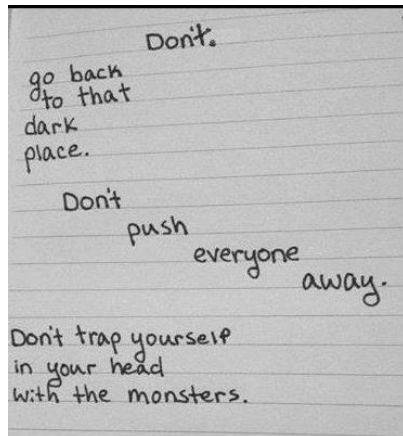 Don't.
go back
to that
dark
place.
Don't
push
everyone
away.
Don't trap yourself
in your head
with the monsters.